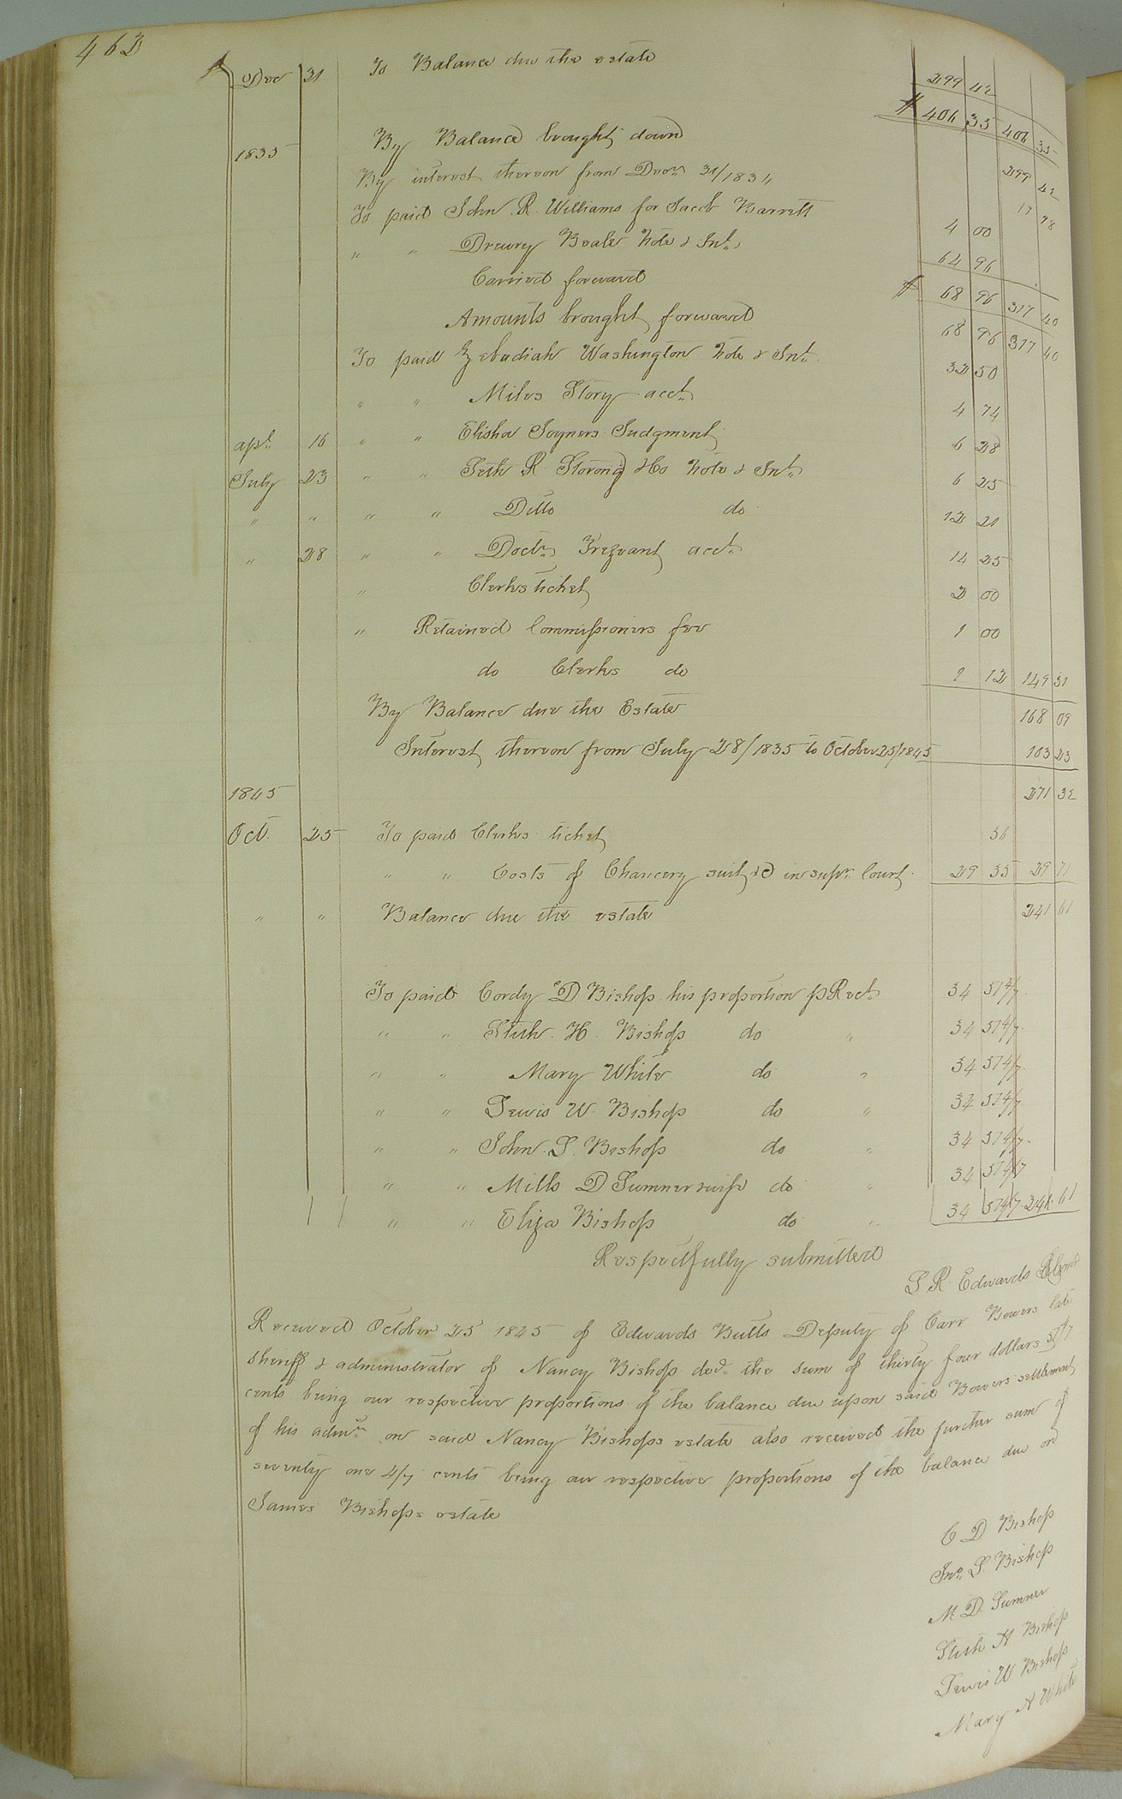 462
Dec 31 To Balance due the estate 299 42
$ 406 35 406 35
1835 By Balance brought down 299 42
By interest thereon from Decr 31/1834 17 98
To paid John R. Williams for Jacob Barrett 4 00
" " Drewry Beale Note & Int. 64 96
Carried forward $ 68 96 317 40
Amounts brought forward 68 96 317 40
To paid Zebadiah Washington Note & Int. 32 50
" " Miles Story acct. 4 74
apl. 16 " " Elisha Joyners Judgment 6 28
July 23 " " Seth R Storong & Co Note & Int. 6 25
" " " " Ditto do 12 21
" 28 " " Doctr. Trezvant acct. 14 25
" Clerks ticket 2 00
" Retained Commissioners fee 1 00
do Clerks do 2 12 149 31
By Balance due the Estate 168 09
Interest thereon from July 28/1835 to October 25/1845 103 23
1845 271 32
Oct. 25 To paid Clerks ticket 36
" " Costs of Chancery suit &c in supr. Court 29 35 29 71
" " Balance due the estate 241 61
To paid Cordy D Bishop his proportion p Rect. 34 51 4/7
" " Stith H. Bishop do " 34 51 4/7
" " Mary White do " 34 51 4/7
" " Lewis W. Bishop do " 34 51 4/7
" " John S. Bishop do " 34 51 4/7
" " Mills D Sumner wife do " 34 51 4/7
" " Eliza Bishop do " 34 51 4/7 241 61
Respectfully submitted
L R Edwards
Received October 25 1845 of Edwards Butts Deputy of Carr Bowers late
sheriff & administrator of Nancy Bishop decd. the sum of thirty four dollars 51 4/7
cents being our respective proportions of the balance due upon said Bowers settlement
of his admn. on said Nancy Bishops estate also received the further sum of
seventy one 4/7 cents being our respective proportions of the balance due on
James Bishops estate
C D Bishop
Jno. S. Bishop
M. D. Sumner
Stith H Bishop
Lewis W Bishop
Mary A White